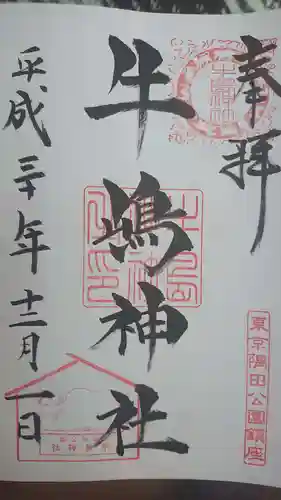 奉拝
牛嶋神社
平成三十年十二月一日
東京隅田公園鎮座